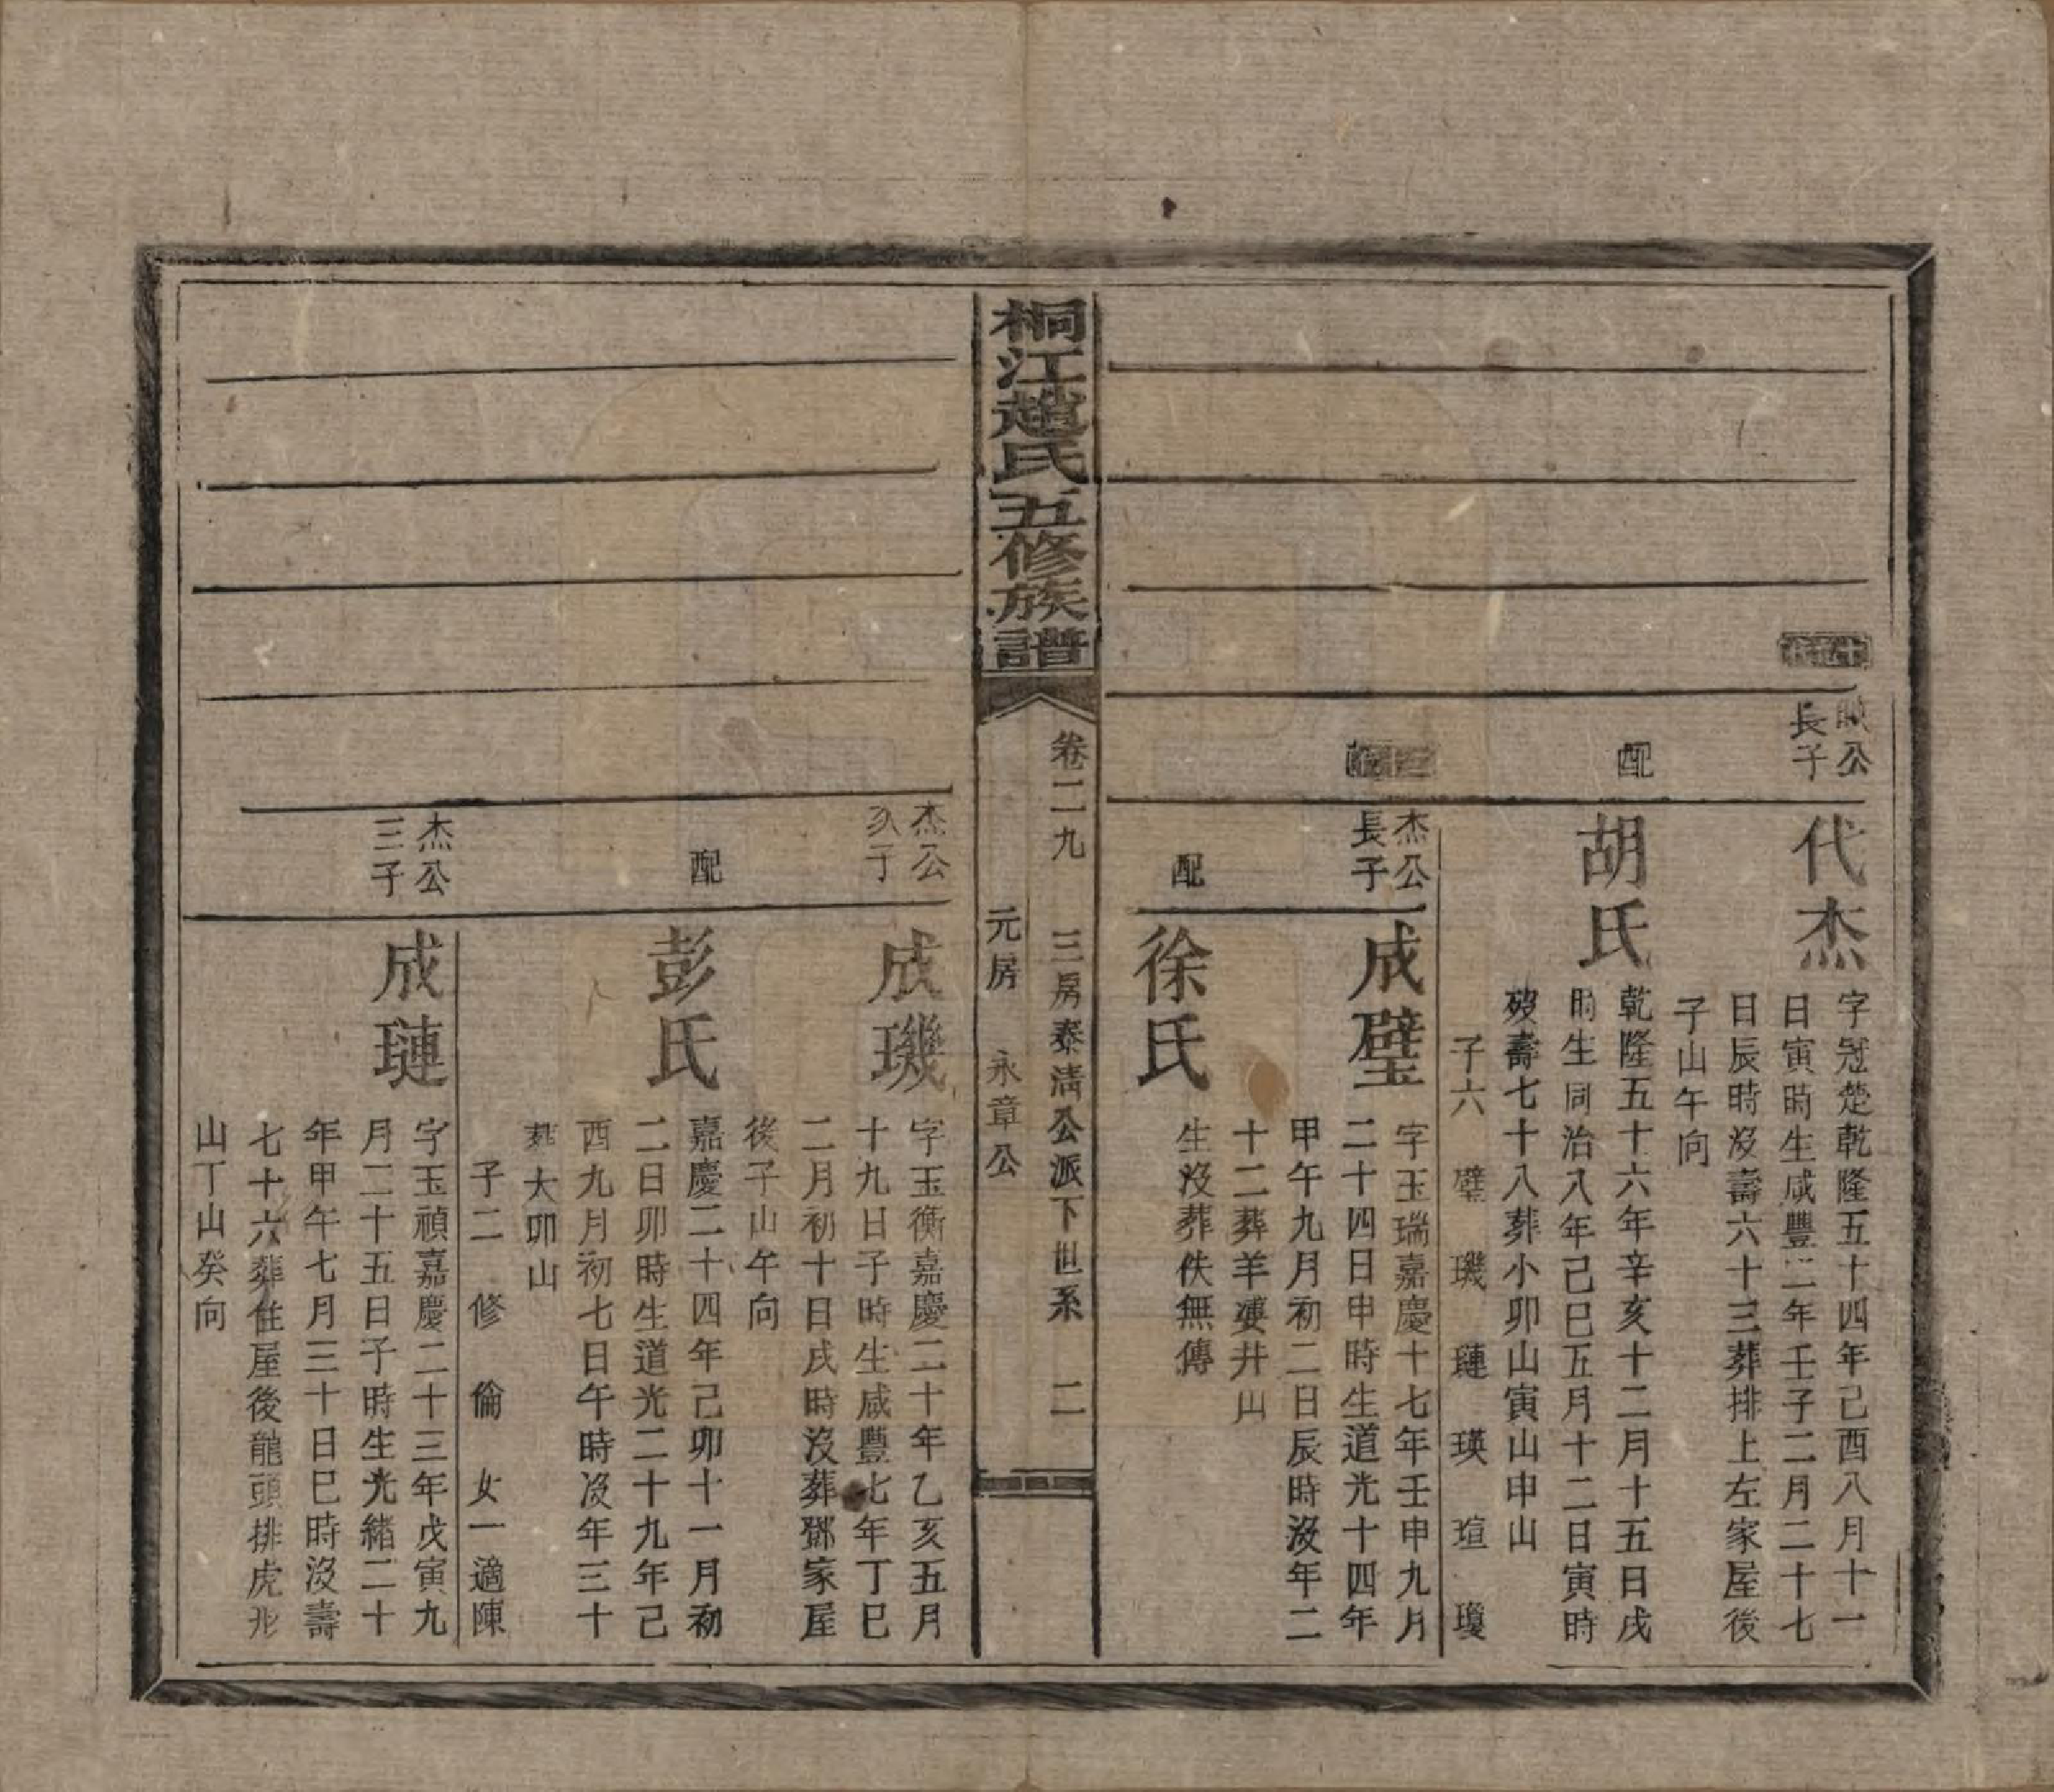 公
長子
代杰
字冠楚乾隆五十四年己酉八月十一
日寅時生咸豐二年壬子二月二十七
日辰時沒壽六十三葬排上左家屋後
子山午向
配
胡氏
乾隆五十六年辛亥十二月十五日戌
時生同治八年己巳五月十二日寅時
歿壽七十八葬小卯山寅山申山
子六 璧 璣 璉 瑛 瑄 瓊
杰公
長子
成璧
字玉瑞嘉慶十七年壬申九月
二十四日申時生道光十四年
甲午九月初二日辰時沒年二
十二葬羊婆井山
配
徐氏
生沒葬佚無傳
桐江趙氏五修族譜
卷二九 三房泰清公派下世系 二
元房 永章公
杰公
次子
成璣
字玉衡嘉慶二十年乙亥五月
十九日子時生咸豐七年丁巳
二月初十日戌時沒葬鄧家屋
後子山午向
配
彭氏
嘉慶二十四年己卯十一月初
二日卯時生道光二十九年己
酉九月初七日午時沒年三十
葬大卯山
子二 修 倫 女一適陳
杰公
三子
成璉
字玉禎嘉慶二十三年戊寅九
月二十五日子時生光緒二十
年甲午七月三十日巳時沒壽
七十六葬住屋後龍頭排虎形
山丁山癸向